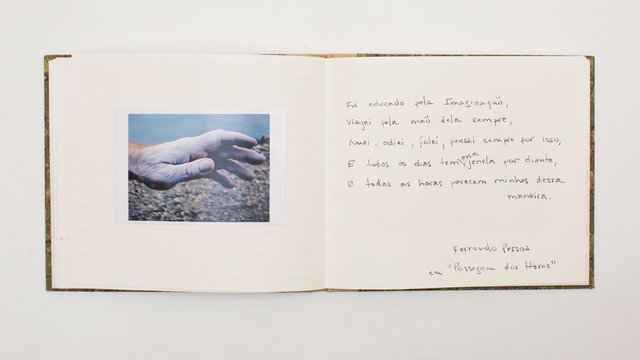 Fui educado pela Imaginação,
Viajei pela mão dela sempre,
Amei, odiei, falei, pensei sempre por isso,
E todos os dias tem essa janela por diante,
E todas as horas parecem minhas dessa
maneira.
Fernando Pessoa
em "Passagem das Horas"